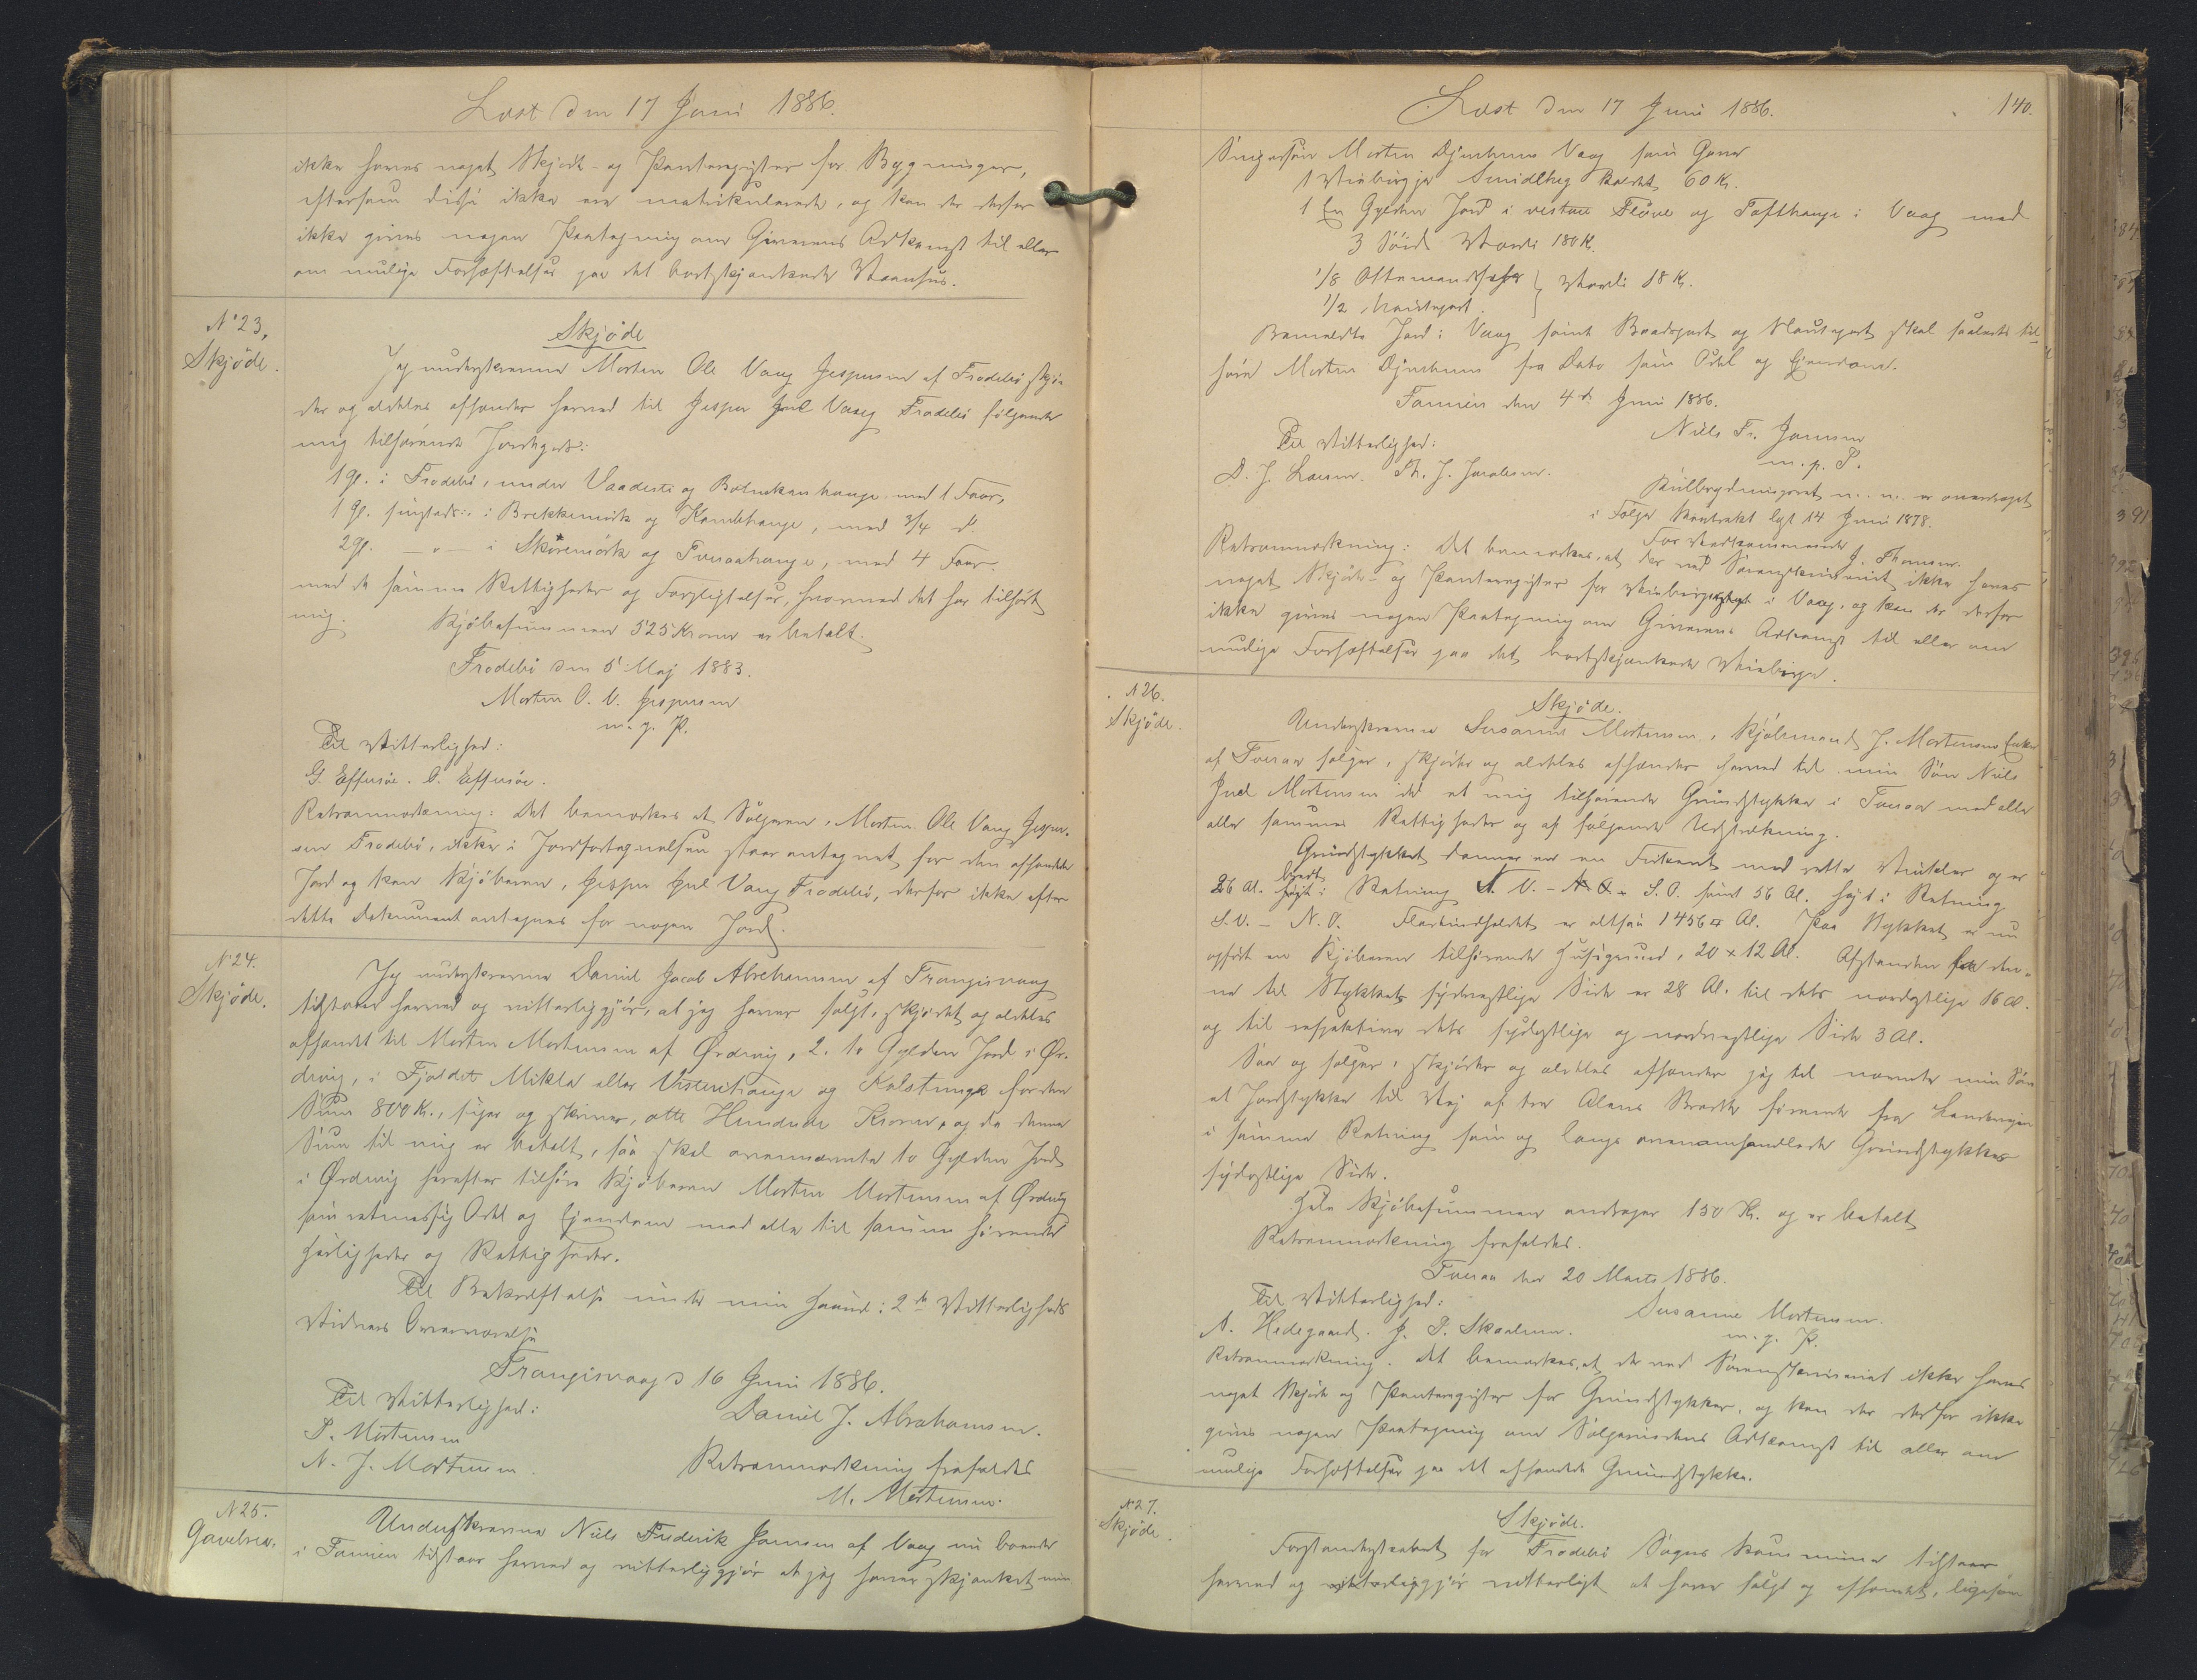 Læst den 17 Juni 1886.
ikke haves noget Skjøde- og Panteregister for Bygninger,
eftersom disse ikke ere matrikulerede, og kan der derfor
ikke gives nogen Paategning om Giverens Adkomst til eller
om mulige Forhæftelser paa det bortskjænkede Vaanhus.
N° 23,
Skjøde.
Skjøde
Jeg underskrevne Morten Ole Vaag Jespersen af Frodebø skjø-
der og aldeles afhænder herved til Jesper Juul Vaag Frodebø følgende
mig tilhørende Jordegods:
1 gl. i Frodebø, under Vaadeste og Botnskanhauge med 1 Faar,
1 gl. sammesteds i Brekkemørk og Kambhauge, med 3/4 d°
2 gl. — " — i Skoremørk og Tveraahauge, med 4 Faar.
med de samme Rettigheder og Forpligtelser, hvormed det har tilhørt
mig. Kjøbesummen 525 Kroner er betalt.
Frodebø den 5 Maj 1883.
Morten O. V. Jespersen
m. p. P.
Til Vitterlighed:
G. Effersøe. O. Effersøe.
Retsanmærkning: Det bemærkes at Sælgeren, Morten Ole Vaag Jesper-
sen Frodebø, ikke i Jordfortegnelsen staar antegnet for den afhændede
Jord og kan Kjøberen, Jesper Juul Vaag Frodebø, derfor ikke efter
dette Dokument antegnes for nogen Jord.
N° 24.
Skjøde.
Jeg underskrevne Daniel Jacob Abrahamsen af Trangisvaag
tilstaar herved og vitterliggjør, at jeg haver solgt, skjødet og aldeles
afhændet til Morten Mortensen af Ørdevig, 2. to Gylden Jord i Ør-
devig, i Fjeldet Mikla eller Vesterhauge og for den
Sum 800 Kr., siger og skriver, otte Hundrede Kroner, og da denne
Sum til mig er betalt, saa skal ovennævnte to Gylden Jord
i Ørdevig herefter tilhøre Kjøberen Morten Mortensen af Ørdevig
som retmæssig Odel og Ejendom med alle til samme hørende
Herligheder og Rettigheder.
Til Bekræftelse under min Haand i 2de Vitterligheds
Vidners Overværelse
Trangisvaag d 16 Juni 1886.
Til Vitterlighed:
Daniel J. Abrahamsen.
P. Mortensen
N. J. Mortensen.
Retsanmærkning frafaldes
M. Mortensen.
N 25.
Gavebrev.
Underskrevne Niels Frederik Jansen af Vaag nu boende
i Famien tilstaar herved og vitterliggjør at jeg haver skjænket min
Læst den 17 Juni 1886.
140.
Svigersøn Morten Djurhuus Vaag som Gave
1 Smidlhug Værdi 60 Kr.
1 En Gylden Jord i vestare Fløve og Tofthauge i Vaag med
3 Søid Værdi 180 K.
1/8 Ottemands
1/2 Nautapart } Værdi 18 Kr.
Bemeldte Jord i Vaag samt Baadspart og Nautapart skal saaledes til-
høre Morten Djurhuus fra Dato som Odel og Ejendom.
Famien den 4de Juni 1886.
Niels Fr. Jansen
m. p. P.
Til Vitterlighed:
D. J. Larsen. Th. J. Jacobsen.
Kulbrydningsret m. m. er overdraget
i Følge Kontrakt lyst 14 Juni 1878.
For Vedkommende J. Thomsen.
Retsanmærkning: Det bemærkes, at der ved Sorenskriveriet ikke haves
noget Skjøde- og Panteregister for i Vaag, og kan der derfor
ikke gives nogen Paategning om Giverens Adkomst til eller om
mulige Forhæftelser paa det bortskjænkede
N 26.
Skjøde.
Skjøde.
Underskrevne Susanne Mortensen, Kjøbmand J. Mortensens Enke
af Tveraa sælger, skjøder og aldeles afhænder herved til min Søn Niels
Juel Mortensen et mig tilhørende Grundstykke i Tveraa med alle
samme Rettigheder og af følgende Udstrækning.
Grundstykket danner en Firkant med rette Vinkler og er
26 Al. bredt i Retning N. V. – S. O. samt 56 Al. højt i Retning
S. V. – N. O. Fladeindholdet er altsaa 1456 □ Al. Paa Stykket er nu
opført en Kjøberen tilhørende Husgrund, 20 x 12 Al. Afstanden fra den-
ne til Stykkets sydvestlige Side er 28 Al. til dets nordostlige 16 Al.
og til respektive dets sydostlige og nordvestlige Side 3 Al.
Saa og sælger, skjøder og aldeles afhænder jeg til nævnte min Søn
et Jordstykke til Vej af tre Alens Bredde førende fra Landevejen
i samme Retning som og langs ovenomhandlede Grundstykkes
sydostlige Side.
Hele Kjøbesummen andrager 150 Kr. og er betalt
Retsanmærkning frafaldes.
Tveraa den 20 Marts 1886.
Til Vitterlighed:
Susanne Mortensen.
m. p. P.
A. Hedegaard. J. P. Skaalum.
Retsanmærkning. Det bemærkes, at der ved Sorenskriveriet ikke haves
noget Skjøde og Panteregister for Grundstykker, og kan der derfor ikke
gives nogen Paategning om Sælgerindens Adkomst til eller om
mulige Forhæftelser paa det afhændede Grundstykke.
N 27.
Skjøde.
Skjøde.
Forstanderskabet for Frodebø Sogns Kommune tilstaar
herved og gjør vitterligt at have solgt og afhændet, ligesom